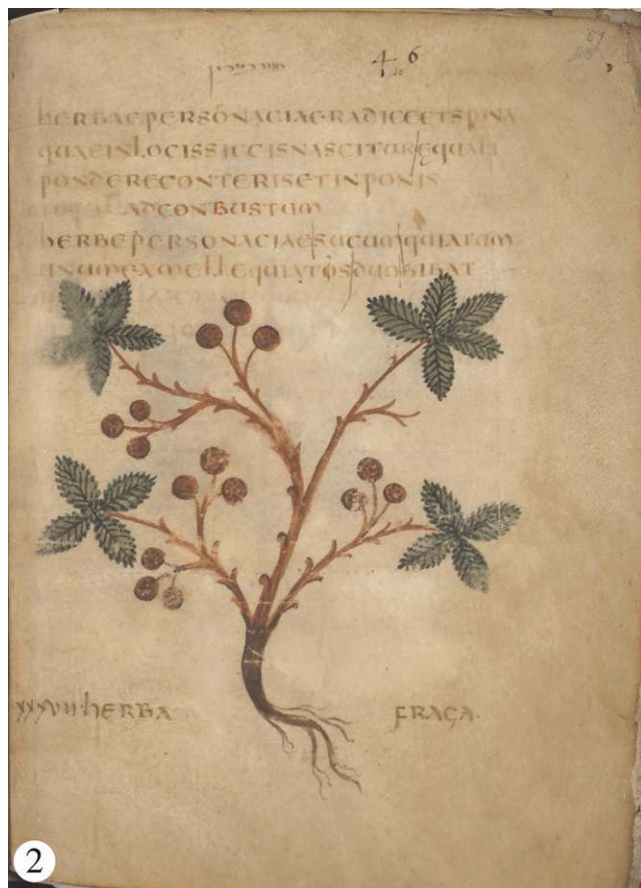 46
HERBAE PERSONACIAE RADICE ET SPINA
QUAE IN LOCIS SICCIS NASCITUR EQUALI
PONDERE CONTERIS ET INPONIS
AD CONBUSTUM
HERBE PERSONACIAE SUCUM QUIATUM
UNUM EX MELLE QUIATOS DUO BIBAT
XXXVII·HERBA FRAGA·
2